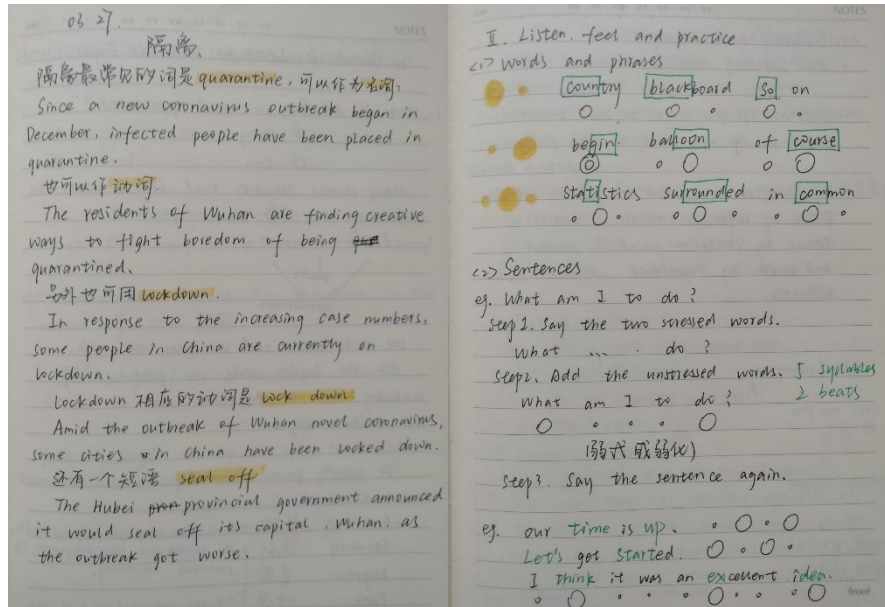 03 27.
NOTES
隔离、
隔离最常见的词是 quarantine, 可以作为名词。
Since a new coronavirus outbreak began in
December, infected people have been placed in
quarantine.
也可以作动词
The residents of Wuhan are finding creative
ways to fight boredom of being
quarantined.
另外也可用 lockdown.
In response to the increasing case numbers,
some people in China are currently on
lockdown.
Lockdown 相应的动词是 lock down.
Amid the outbreak of Wuhan novel coronavirus,
some cities in China have been locked down.
还有一个短语 seal off
The Hubei provincial government announced
it would seal off its capital, Wuhan. as
the outbreak got worse.
NOTES
II. Listen, feel and practice
<1> words and phrases
country blackboard so on
begin. balloon of course
statistics surrounded in common
<2> Sentences
eg. What am I to do?
Step 1. Say the two stressed words.
What ... . do?
Step2. Add the unstressed words. 5 syllables
What am I to do? 2 beats
(弱式或弱化)
Step3. Say the sentence again.
eg. our time is up.
Let's get started.
I think it was an excellent idea.
front